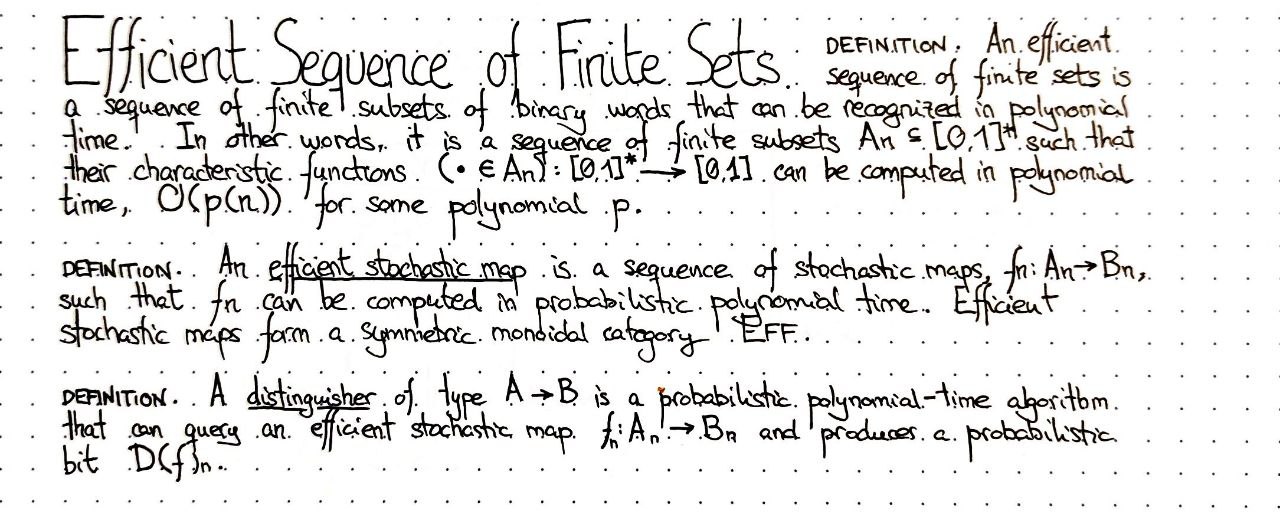 Efficient Sequence of Finite Sets. DEFINITION. An efficient
sequence of finite sets is
a sequence of finite subsets of binary words that can be recognized in polynomial
time. In other words, it is a sequence of finite subsets An ⊆ [0,1]* such that
their characteristic functions (• ∈ An): [0,1]* → [0,1] can be computed in polynomial
time, O(p(n)) for some polynomial p.
DEFINITION. An efficient stochastic map is a sequence of stochastic maps, fn: An→Bn,
such that fn can be computed in probabilistic polynomial time. Efficient
stochastic maps form a symmetric monoidal category EFF.
DEFINITION. A distinguisher of type A→B is a probabilistic polynomial-time algorithm
that can query an efficient stochastic map fn: An → Bn and produces a probabilistic
bit D(f)n.